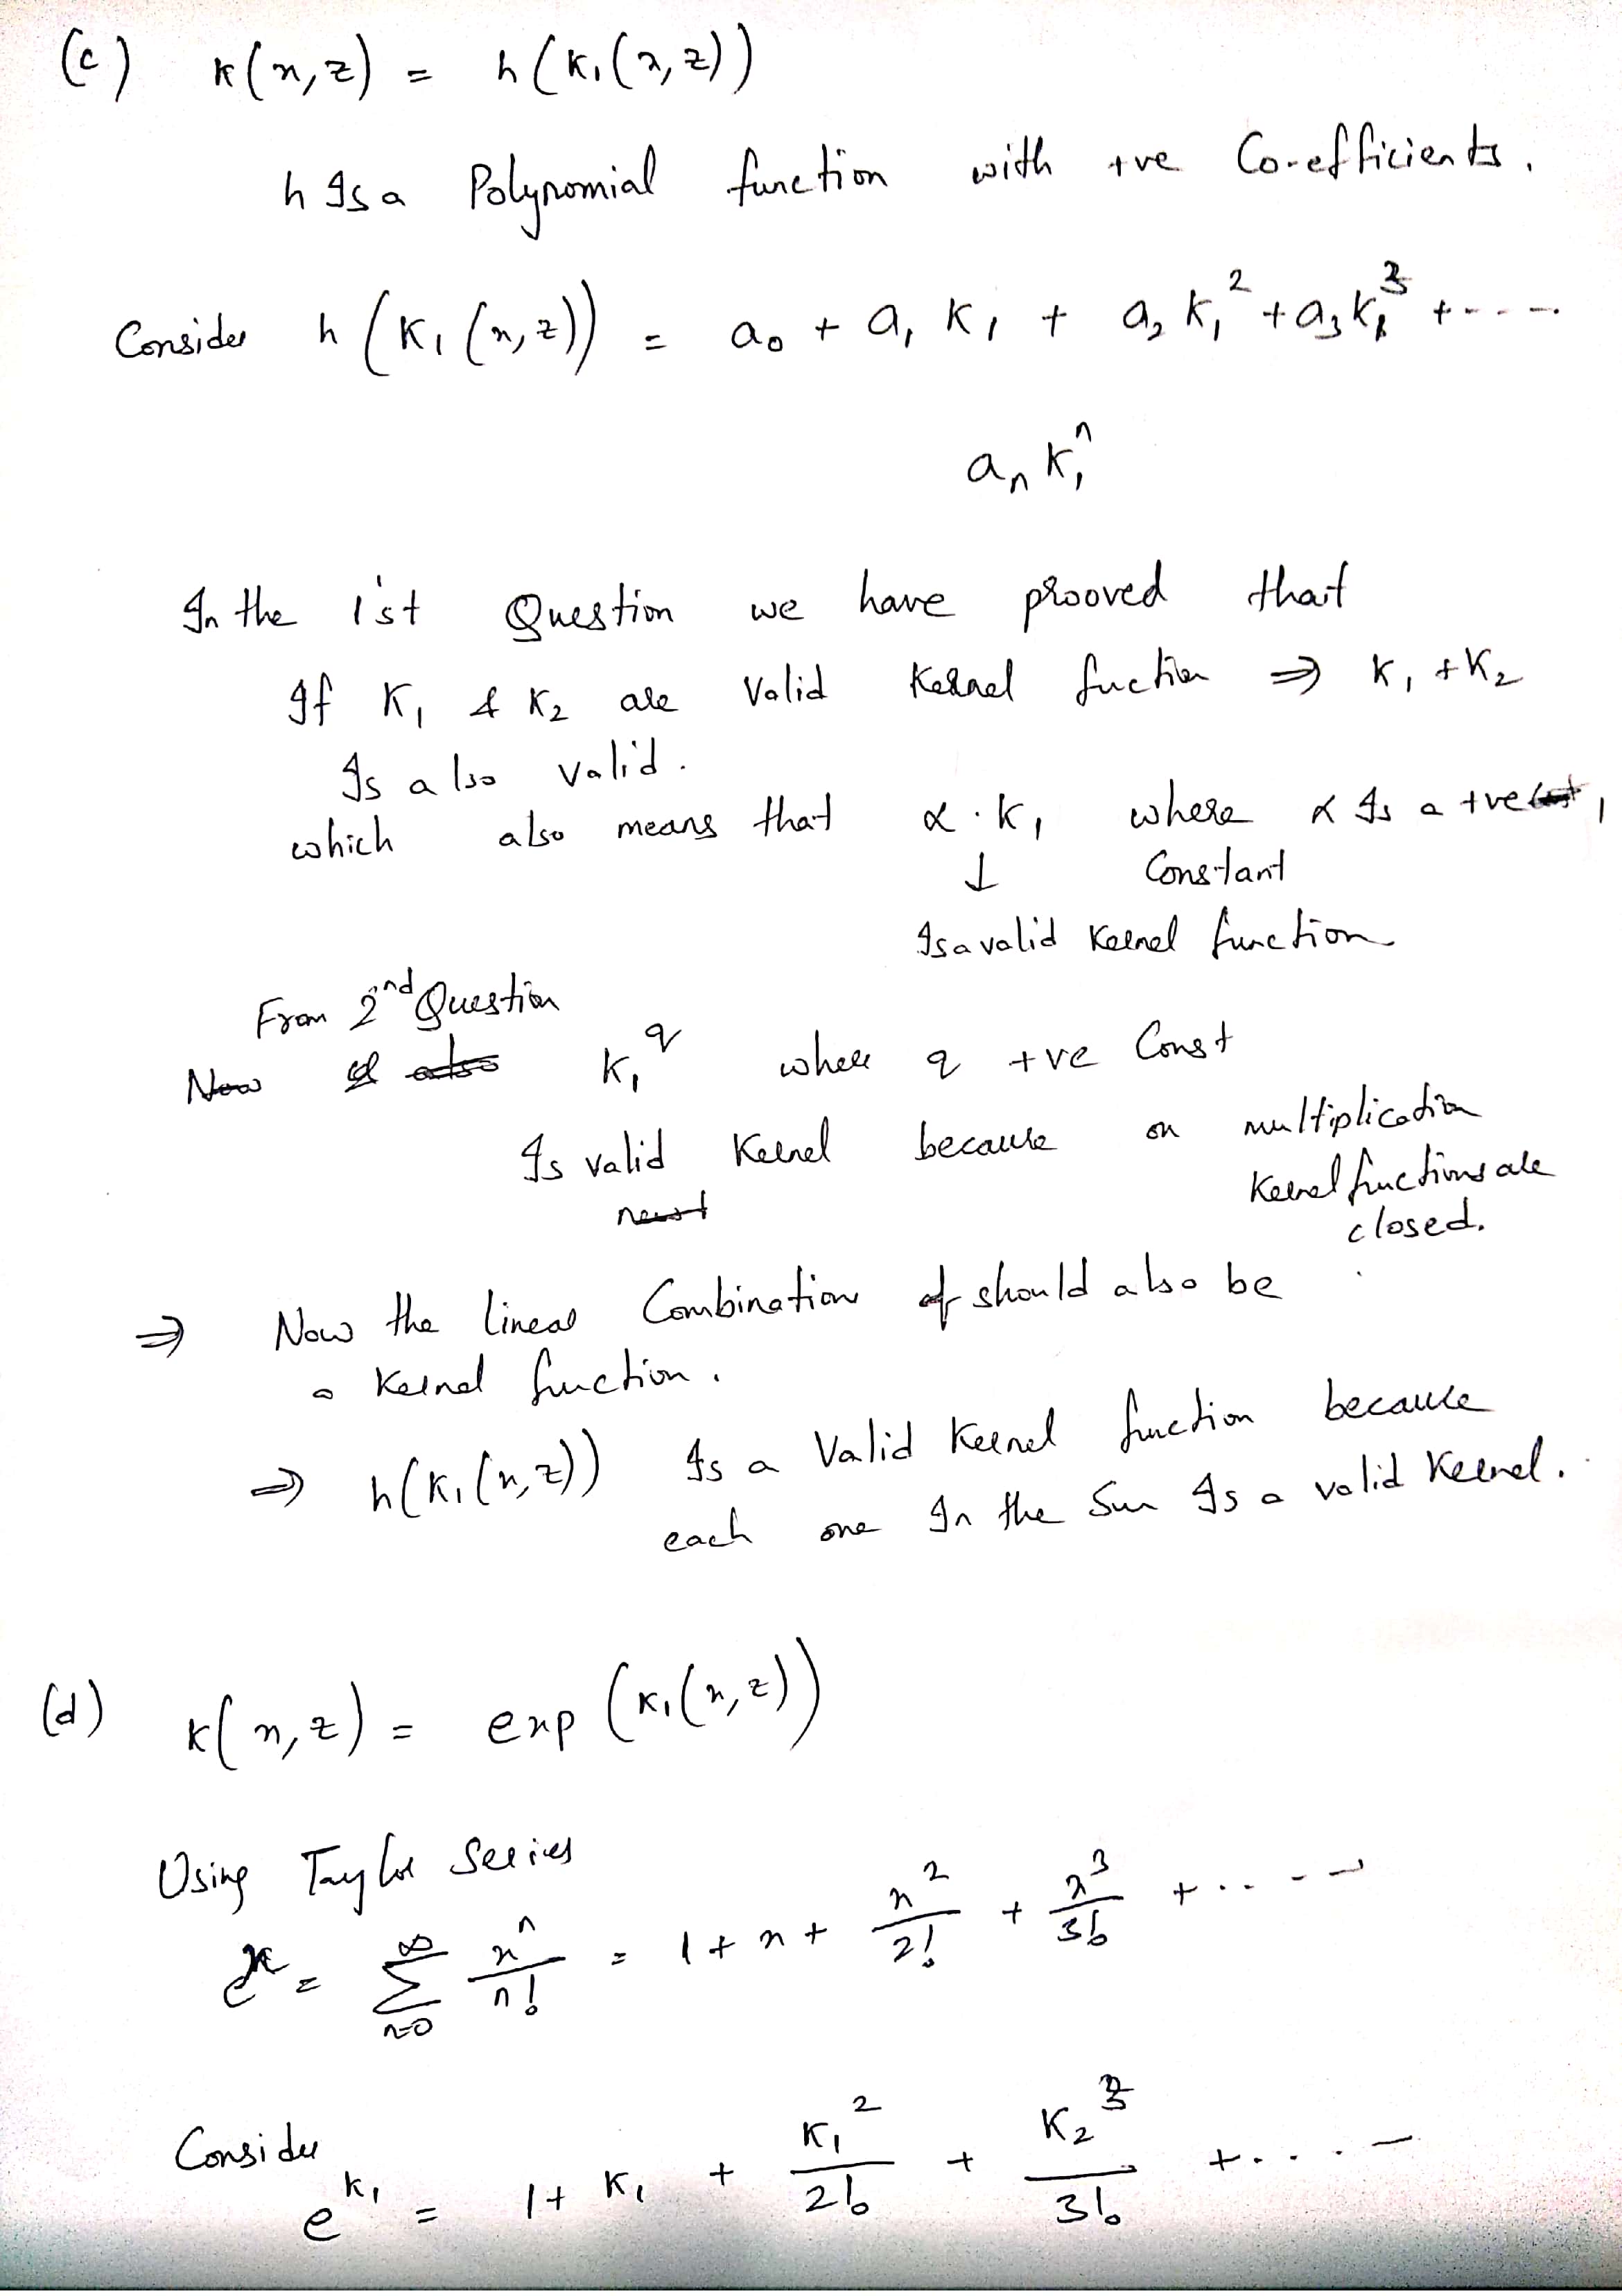 (c) K(x,z) = h(K₁(x,z))
h Is a Polynomial function with +ve Co-efficients.
Consider h(K₁(x,z)) = a₀ + a₁ K₁ + a₂ K₁² + a₃ K₁³ + ----
aₙ K₁ⁿ
In the 1st Question we have prooved that
If K₁ & K₂ are Valid Kernel fuction ⇒ K₁ + K₂
Is also valid.
which also means that α · K₁ where α Is a +ve
↓ Constant
Is a valid Kernel function
From 2nd Question
K₁^q where q +ve Const
Is valid Kernel because on multiplication
Kernel functions are
closed.
⇒ Now the linear Combination of should also be
a Kernel function.
⇒ h(K₁(x,z)) Is a Valid Kernel function because
each one In the Sum Is a valid Kernel.
(d) K(x,z) = exp(K₁(x,z))
Using Taylor Series
eˣ = ∑ₙ₌₀^∞ xⁿ/n! = 1 + x + x²/2! + x³/3! + ....
Consider
e^K₁ = 1 + K₁ + K₁²/2! + K₂³/3! + ....